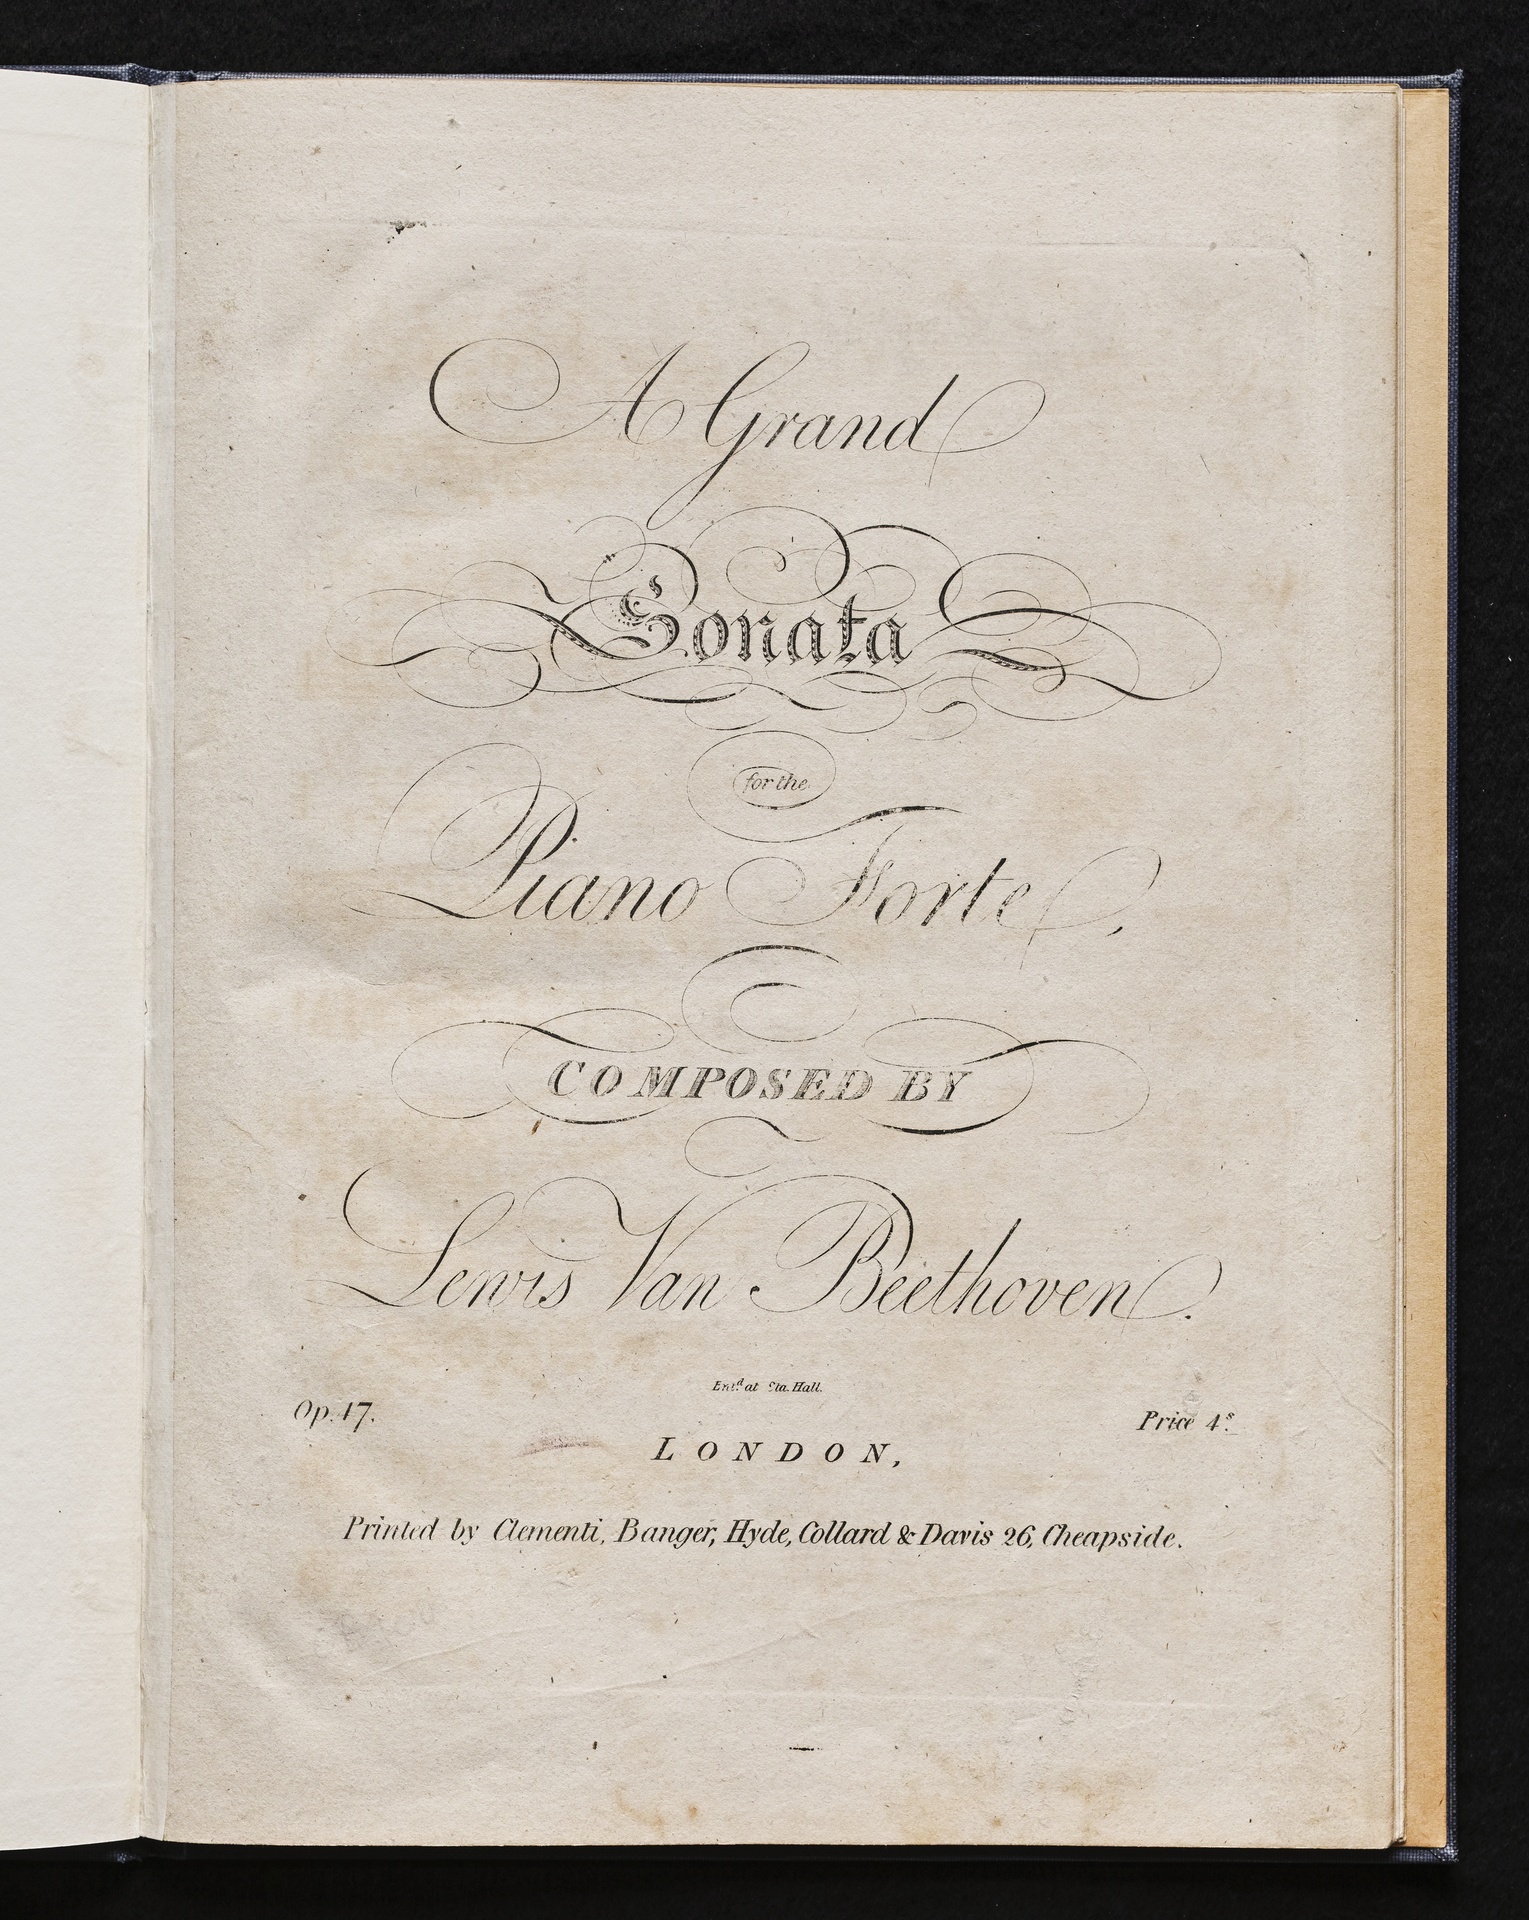 A Grand
Sonata
for the
Piano Forte,
COMPOSED BY
Lewis Van Beethoven.
Ent.d at Sta. Hall.
Op. 17.
Price 4.s
LONDON,
Printed by Clementi, Banger, Hyde, Collard & Davis 26, Cheapside.